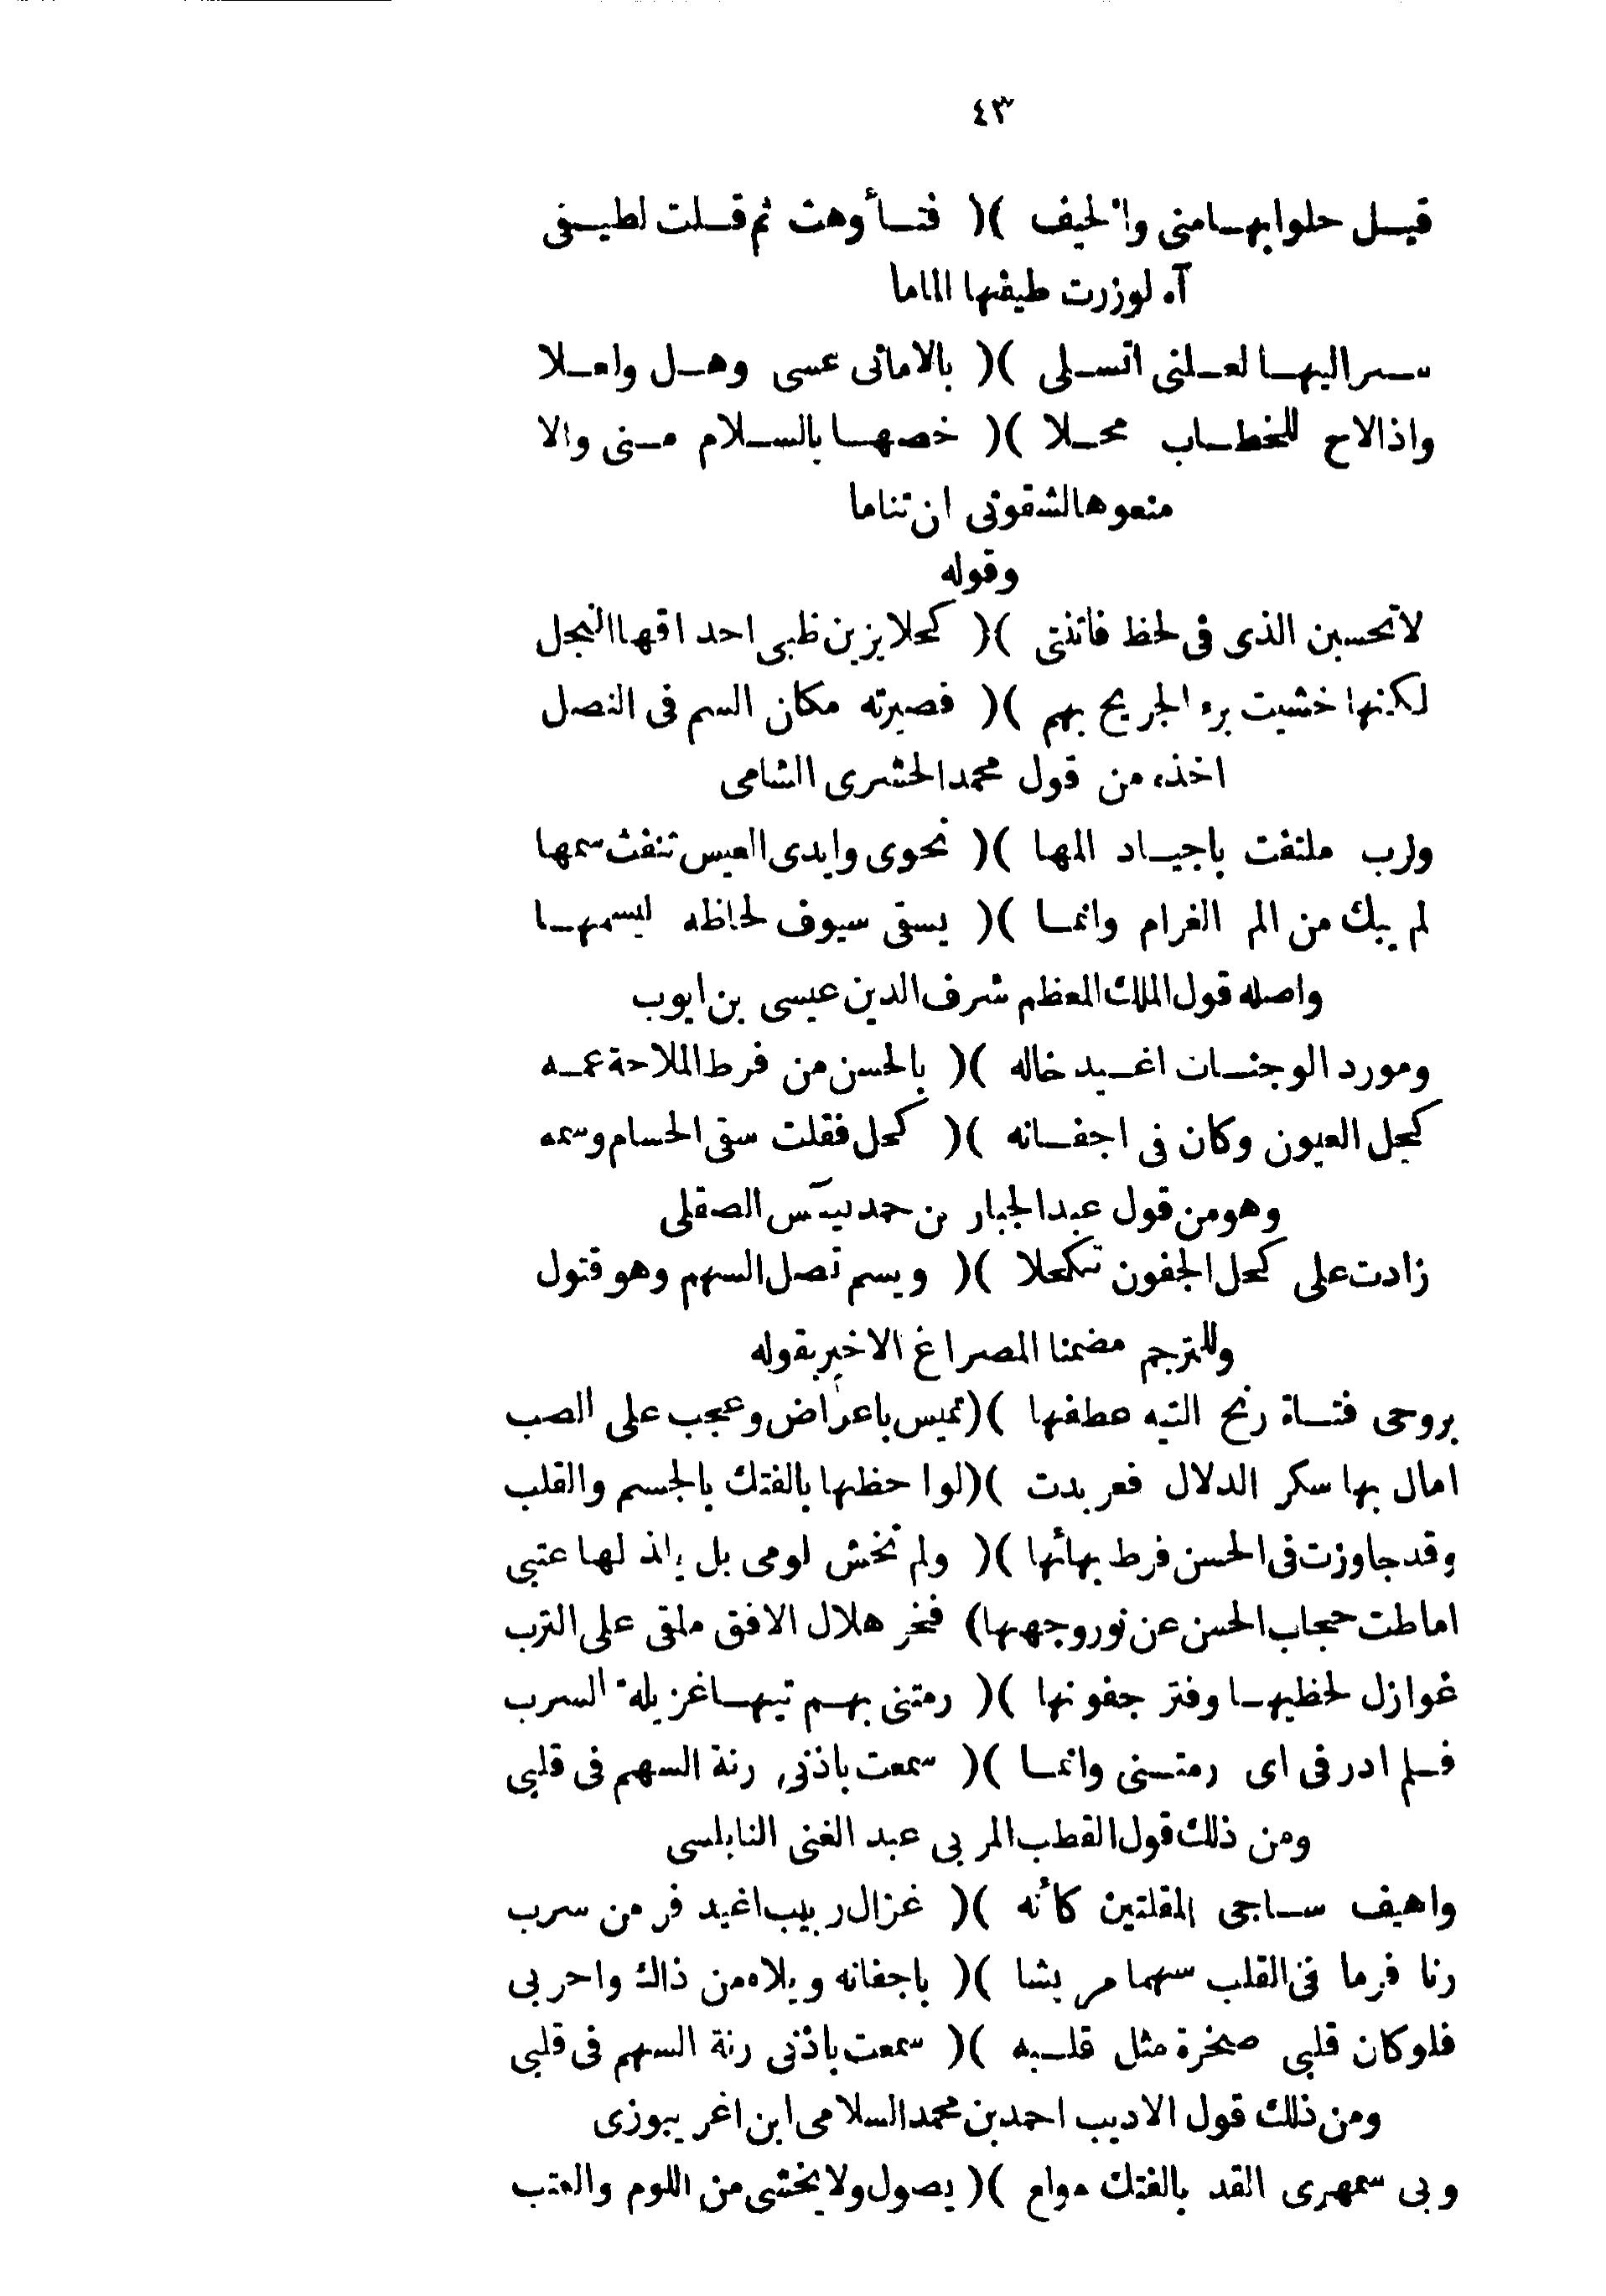 ٤٣
قيل حلوا بها منى والخيف )( فتأوهت ثم قلت لطيفى
آه لو زرت طيفها الماما
سر اليها لعلنى اتسلى )( بالامانى عسى وهل ولعلا
واذا لاح للخطاب محلا )( خصها بالسلام منى والا
منعوها لشقوتى ان تناما
وقوله
لا تحسبن الذى فى لحظ فاتنتى )( كحلا يزين ظبى احداقها النجل
لكنها خشيت برء الجريح بهم )( فصيرته مكان السم فى النصل
اخذه من قول محمد الحشرى الشامى
ولرب ملتفت باجياد المها )( نحوى وايدى العيس تنفث سمها
لم يبك من الم الغرام وانما )( يسقى سيوف لحاظه ليسمها
واصله قول الملك المعظم شرف الدين عيسى بن ايوب
ومورد الوجنات اغيد خاله )( بالحسن من فرط الملاحة عمه
كحل العيون وكان فى اجفانه )( كحل فقلت سقى الحسام وسمه
وهو من قول عبد الجبار بن حمديس الصقلى
زادت على كحل الجفون تكحلا )( ويسم نصل السهم وهو قتول
وللترجم مضمنا المصراع الاخير بقوله
بروحى فتاة رنح التيه عطفها )( تميس باعراض وعجب على الصب
امال بها سكر الدلال فعربدت )( لواحظها بالفتك بالجسم والقلب
وقد جاوزت فى الحسن فرط بهائها )( ولم تخش لومى بل يلذ لها عتبى
اماطت حجاب الحسن عن نور وجهها) فخر هلال الافق ملقى على الترب
غوازل لحظيها وفتر جفونها )( رمتنى بهم تيها غزيلة السرب
فلم ادر فى اى رمتنى وانما )( سمعت باذنى رنة السهم فى قلبى
ومن ذلك قول القطب المربى عبد الغنى النابلسى
واهيف ساجى المقلتين كأنه )( غزال ربيب اغيد فر من سرب
رنا فرما فى القلب سهما مريشا )( باجفانه ويلاه من ذاك واحربى
فلو كان قلبى صخرة مثل قلبه )( سمعت باذنى رنة السهم فى قلبى
ومن ذلك قول الاديب احمد بن محمد السلامى ابن اغريبوزى
وبى سمهرى القد بالفتك مولع )( يصول ولا يخشى من اللوم والعتب